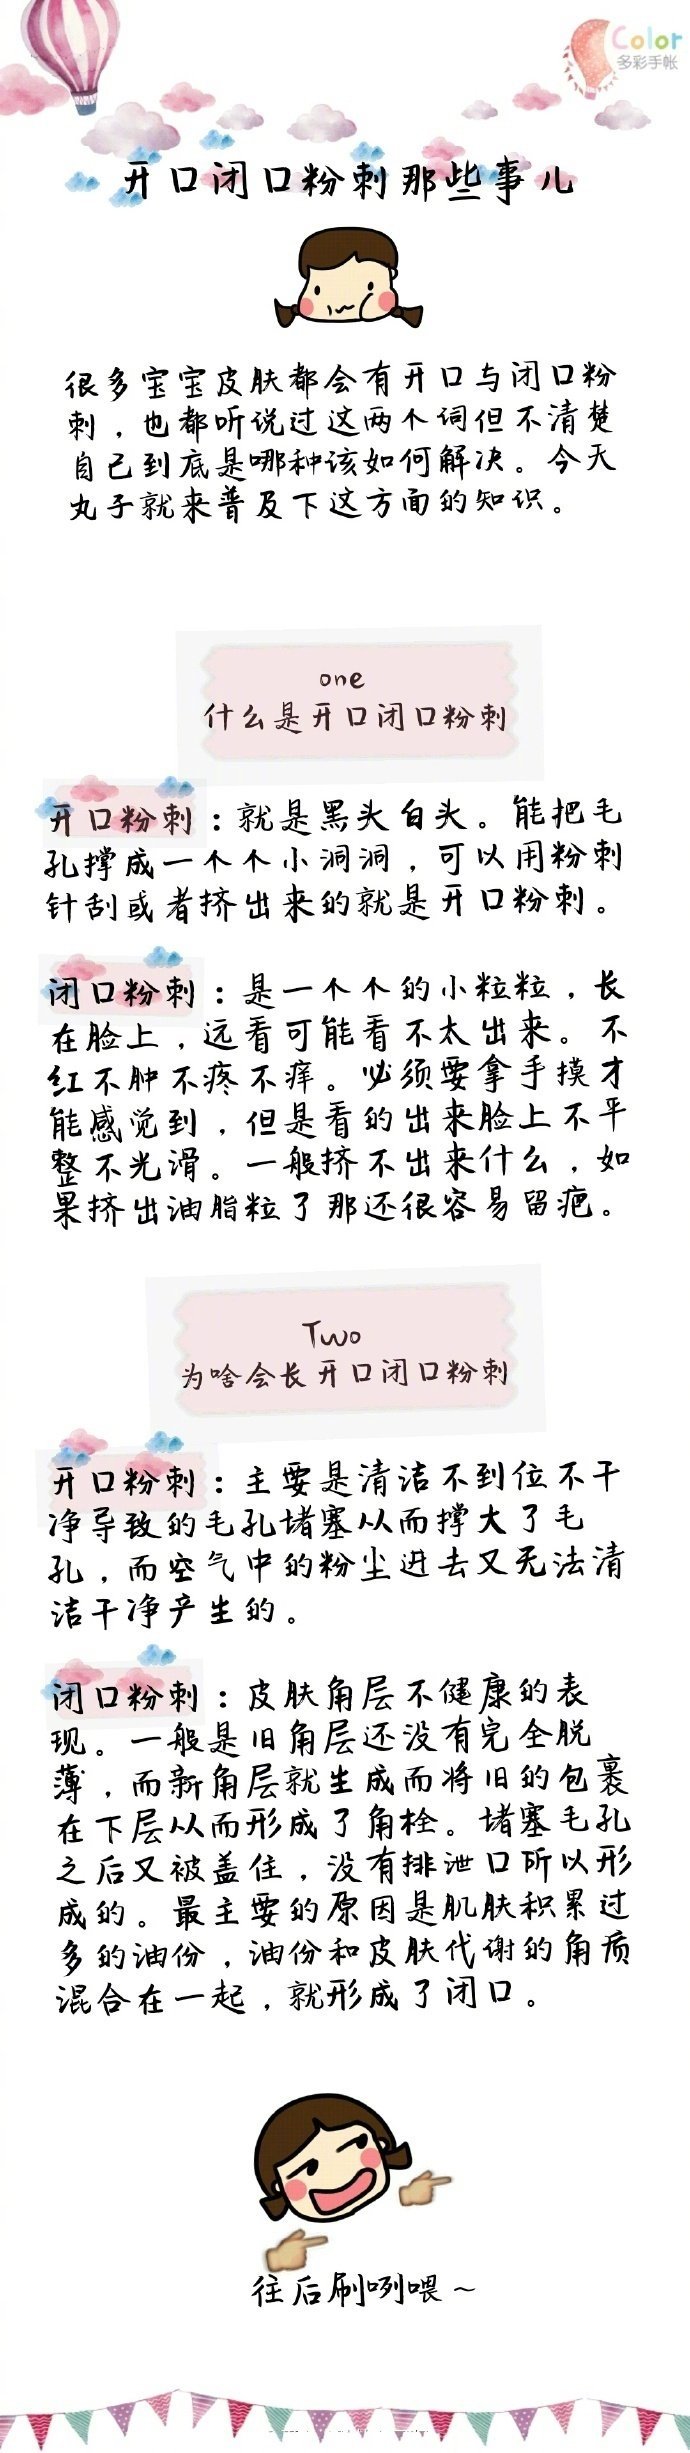 Color
多彩手帐
开口闭口粉刺那些事儿
很多宝宝皮肤都会有开口与闭口粉
刺，也都听说过这两个词但不清楚
自己到底是哪种该如何解决。今天
丸子就来普及下这方面的知识。
one
什么是开口闭口粉刺
开口粉刺：就是黑头白头。能把毛
孔撑成一个个小洞洞，可以用粉刺
针刮或者挤出来的就是开口粉刺。
闭口粉刺：是一个个的小粒粒，长
在脸上，远看可能看不太出来。不
红不肿不疼不痒。必须要拿手摸才
能感觉到，但是看的出来脸上不平
整不光滑。一般挤不出来什么，如
果挤出油脂粒了那还很容易留疤。
Two
为啥会长开口闭口粉刺
开口粉刺：主要是清洁不到位不干
净导致的毛孔堵塞从而撑大了毛
孔，而空气中的粉尘进去又无法清
洁干净产生的。
闭口粉刺：皮肤角层不健康的表
现。一般是旧角层还没有完全脱
薄，而新角层就生成而将旧的包裹
在下层从而形成了角栓。堵塞毛孔
之后又被盖住，没有排泄口所以形
成的。最主要的原因是肌肤积累过
多的油份，油份和皮肤代谢的角质
混合在一起，就形成了闭口。
往后刷咧喂~